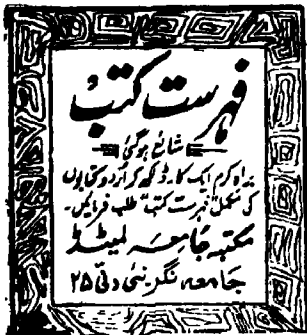 فہرست کتب
شائع ہوگئی
براہ کرم ایک کارڈ لکھ کر اردو کتابوں
کی مکمل فہرست کتب طلب فرمائیں۔
مکتبہ جامعہ لمیٹڈ
جامعہ نگر نئی دلی ۲۵